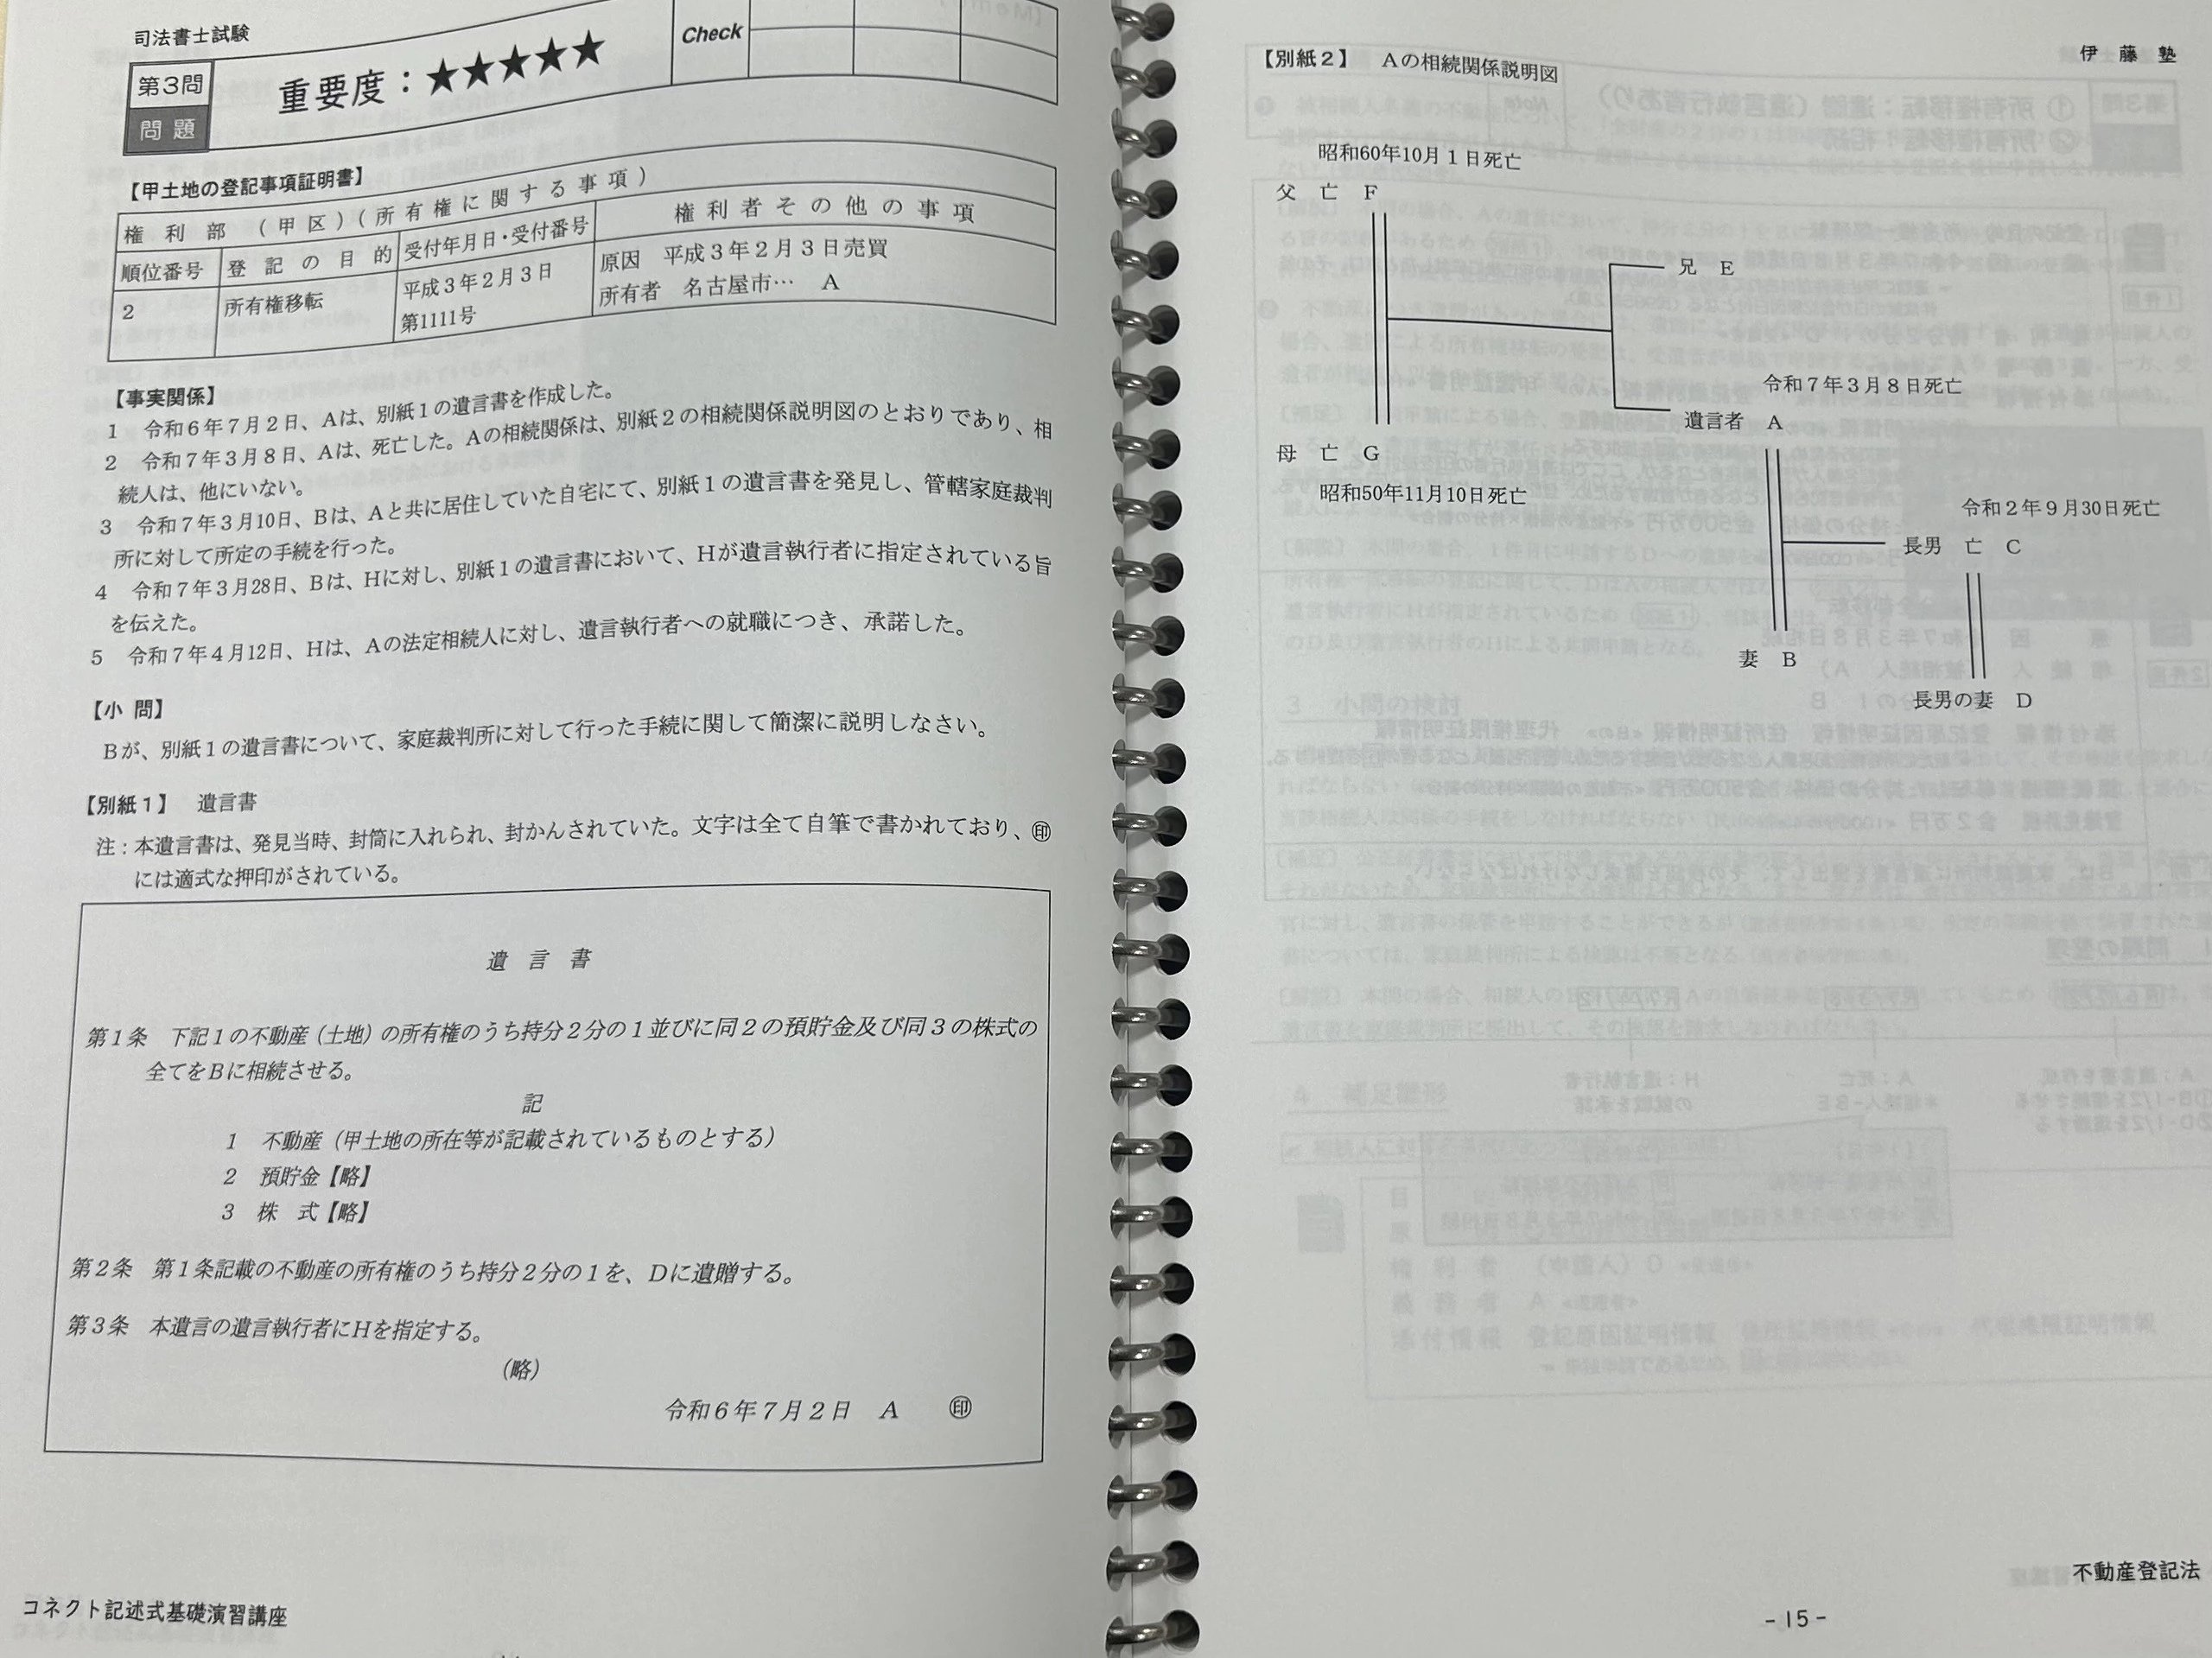 司法書士試験
第3問
問題
重要度：★★★★★
Check
【甲土地の登記事項証明書】
権利部（甲区）（所有権に関する事項）
順位番号 登記の目的 受付年月日・受付番号 権利者その他の事項
2 所有権移転 平成3年2月3日 原因 平成3年2月3日売買
第1111号 所有者 名古屋市… A
【事実関係】
1 令和6年7月2日、Aは、別紙1の遺言書を作成した。
2 令和7年3月8日、Aは、死亡した。Aの相続関係は、別紙2の相続関係説明図のとおりであり、相
続人は、他にいない。
3 令和7年3月10日、Bは、Aと共に居住していた自宅にて、別紙1の遺言書を発見し、管轄家庭裁判
所に対して所定の手続を行った。
4 令和7年3月28日、Bは、Hに対し、別紙1の遺言書において、Hが遺言執行者に指定されている旨
を伝えた。
5 令和7年4月12日、Hは、Aの法定相続人に対し、遺言執行者への就職につき、承諾した。
【小 問】
Bが、別紙1の遺言書について、家庭裁判所に対して行った手続に関して簡潔に説明しなさい。
【別紙1】 遺言書
注：本遺言書は、発見当時、封筒に入れられ、封かんされていた。文字は全て自筆で書かれており、㊞
には適式な押印がされている。
遺 言 書
第1条 下記1の不動産（土地）の所有権のうち持分2分の1並びに同2の預貯金及び同3の株式の
全てをBに相続させる。
記
1 不動産（甲土地の所在等が記載されているものとする）
2 預貯金【略】
3 株 式【略】
第2条 第1条記載の不動産の所有権のうち持分2分の1を、Dに遺贈する。
第3条 本遺言の遺言執行者にHを指定する。
（略）
令和6年7月2日 A ㊞
コネクト記述式基礎演習講座
【別紙2】 Aの相続関係説明図
伊 藤 塾
昭和60年10月1日死亡
父 亡 F
兄 E
令和7年3月8日死亡
遺言者 A
母 亡 G
昭和50年11月10日死亡
令和2年9月30日死亡
長男 亡 C
妻 B
長男の妻 D
不動産登記法
-15-